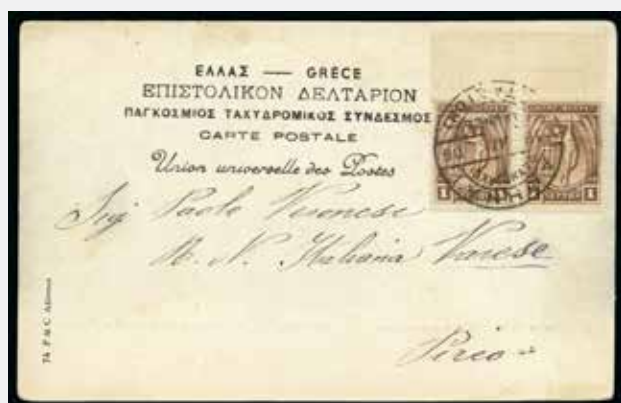 ΕΛΛΑΣ — GRÈCE
ΕΠΙΣΤΟΛΙΚΟΝ ΔΕΛΤΑΡΙΟΝ
ΠΑΓΚΟΣΜΙΟΣ ΤΑΧΥΔΡΟΜΙΚΟΣ ΣΥΝΔΕΣΜΟΣ
CARTE POSTALE
Union universelle des Postes
1 1
Sig Paolo Veronese
R. N. Italiana Varese
Pireo
74 P & C Athènes